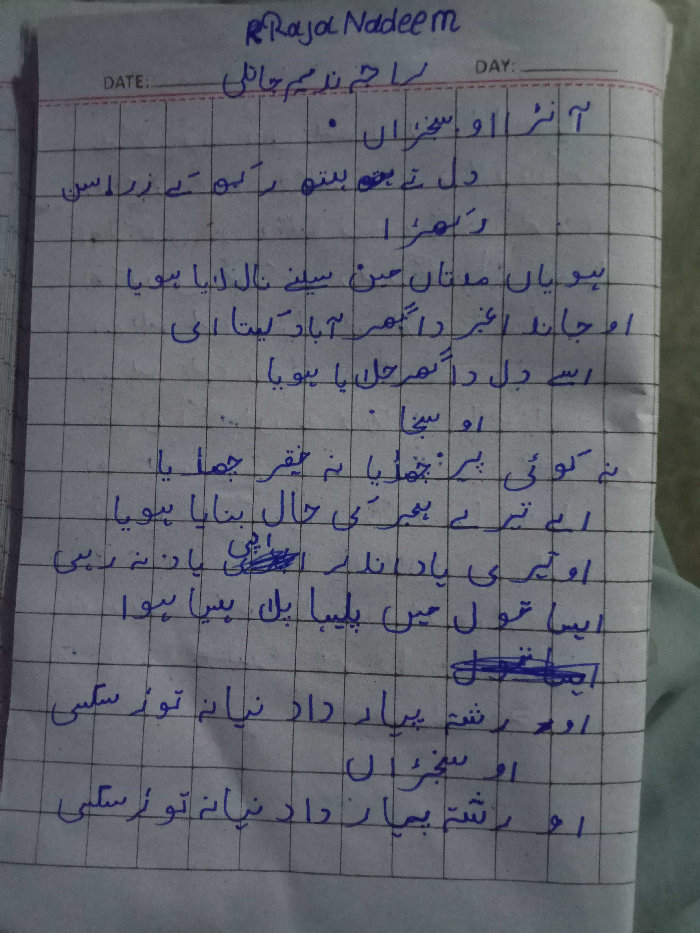 RRaja Nadeem
DATE: DAY:
راجہ ندیم
آ نڑااو سجڑاں
دل تے ہتھ رکھ کے زرا سن
دکھڑا
ہویاں مدتاں مین سینے نال لایا ہویا
او جاندا غیر دا گھر آباد کیتا ای
اسے دل دا گھر جلایا ہویا
او سجنا
نہ کوئی پیر چھڈیا نہ فقیر چھڈیا
اے تیرے ہجر کی حال بنایا ہویا
او تیری یاد اندر اپنی یاد نہ رہی
ایسا میں پیا ہوا
او رشتہ پیار دا دنیا نہ توڑ سکسی
او سجڑاں
او رشتہ پیار دا دنیا نہ توڑ سکسی